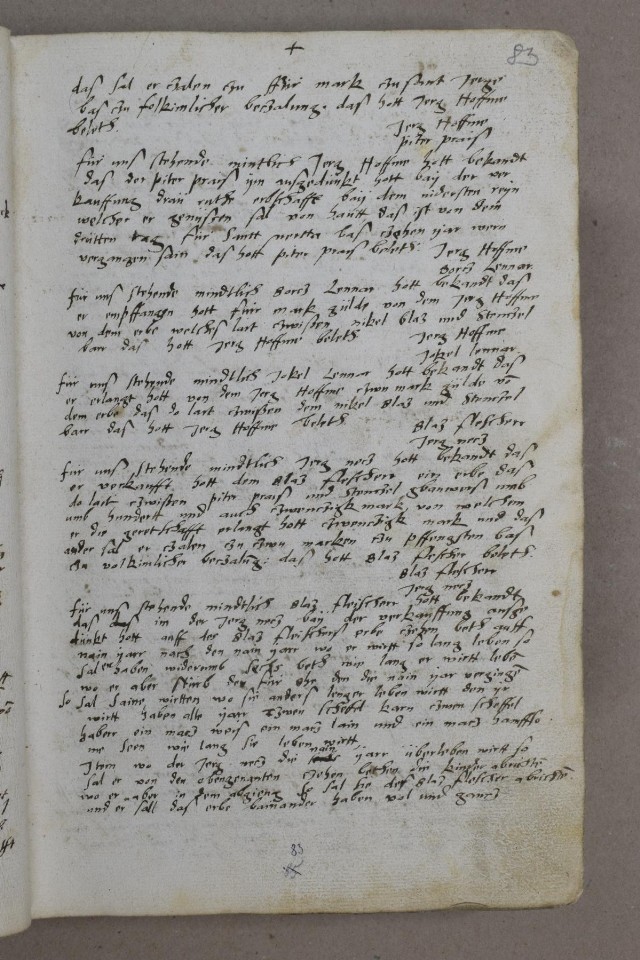 +
83
das sal er czalen czu ffür mark czu sant Jerge
bas czu folkimlicher beczalung. das hott Jerg Hoffme
beleth
Jerg Hoffme
piter prais
für uns stehende mintlich Jerg Hoffme hott bekandt
das der piter prais ym ausgedünkt hott baÿ der ver
kauffung drau ruthe erbschafft baÿ dem nidersten reÿn
welcher er genissen sal von hautt das ist von dem
dritten tag für santt bas czehen jar wern
vergangen sain das hott piter prais beleth
Jerg Hoffme
Borcz Lennar
für uns stehende mindtlich Borcz Lennar hott bekandt das
er empffangen hott für mark gülde von dem Jerg Hoffme
von dem erbe welches lait czwissen nikel blaz und Stenczel
barr das hott Jerg Hoffme beleth
Jerg Hoffme
Jokel lennar
für uns stehende mindtlich Jokel Lennar hott bekandt das
er erlangt hott von dem Jerg Hoffme czwu mark gülde vō
dem erbe das do lait czwissen dem nikel Blaz und Stenczel
barr das hott Jerg Hoffme beleth
Blaz fleischerr
Jerg nerz
für uns stehende mindtlich Jerg nerz hott bekandt das
er verkaufft hott dem Blaz fleischerr ein erbe das
do lait czwissen piter prais und Stenczel umb
umb hundertt und auch czwenczigk mark, von welchem
er die gerettschafft erlangt hott czwenczigk mark und das
ander sal er czalen czu czwu marken czu pffingsten bas
czu volkimlicher beczalung: das hott Blaz fleischer beleth
Blaz fleischerr
Jerg nerz
für uns stehende mindtlich Blaz fleischerr hott bekandt
das im der Jerg nerz baÿ der verkauffung ausge
dünkt hott auff des Blaz fleischers erbe czehen beth auff
nain jarr nach den nain jarr wo er wirtt so lang leben so
sal er haben widerumb sechs beth wie lang er wirtt lebē
wo er aber stürb den für ehe den die nain jar vergingē
so sal saine wo sie anders lenger leben wirtt den yr
wirtt haben alle jarr czwen scheffel karn czwen scheffel
haberr ein macz weis ein macz lain und ein macz hanffso
me seen wie lang sie leben wirtt
Item wo der Jerg nerz die nain jarr überleben wirtt so
sal er von den obengenanten czehen bethen die kinder abrichtē
wo er aber in dem abgieng so sal sie des Blaz fleischer abrichtē
und er sall das erbe bainander haben vol und gancz
83